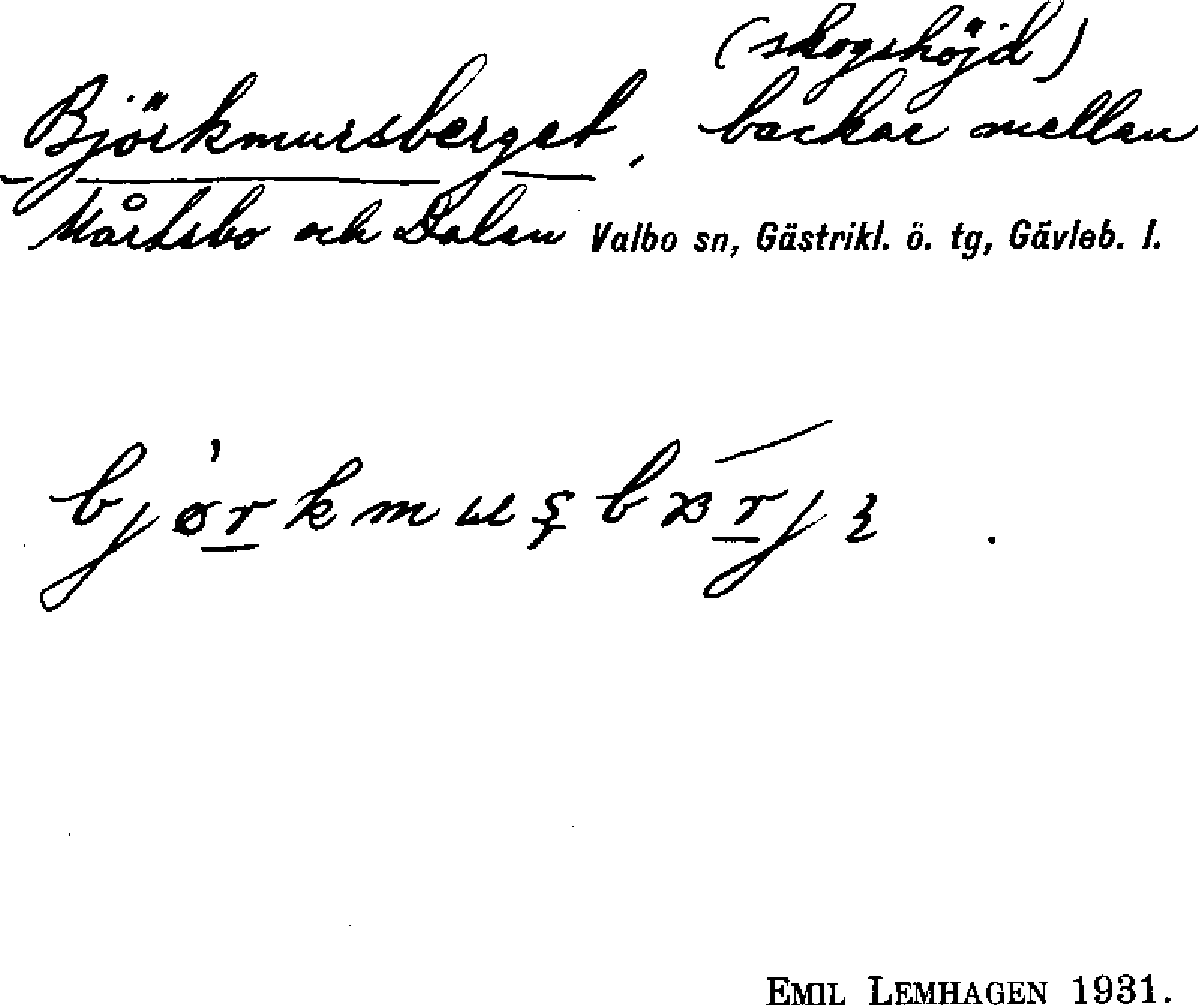 (skogshöjd)
Björkmursberget, backar mellan
Mårtsbo och Dalen Valbo sn, Gästrikl. ö. tg, Gävleb. l.
EMIL LEMHAGEN 1931.